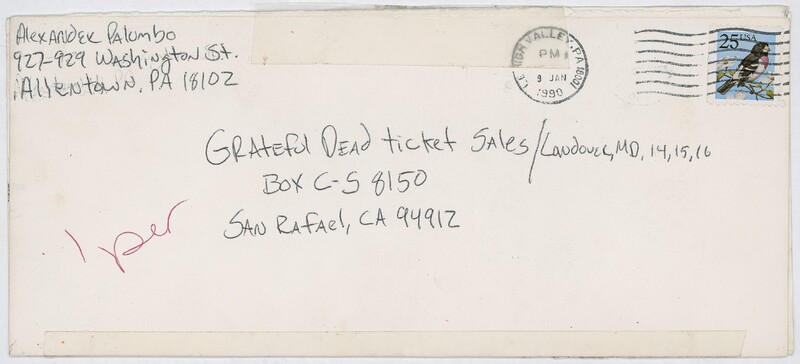 Alexander Palumbo
927-929 Washington St.
Allentown, PA 18102
LEHIGH VALLEY, PA 18001
PM
9 JAN
1990
25 USA
Grateful Dead ticket Sales/Landover, MD, 14, 15, 16
Box C-S 8150
San Rafael, CA 94912
1 per